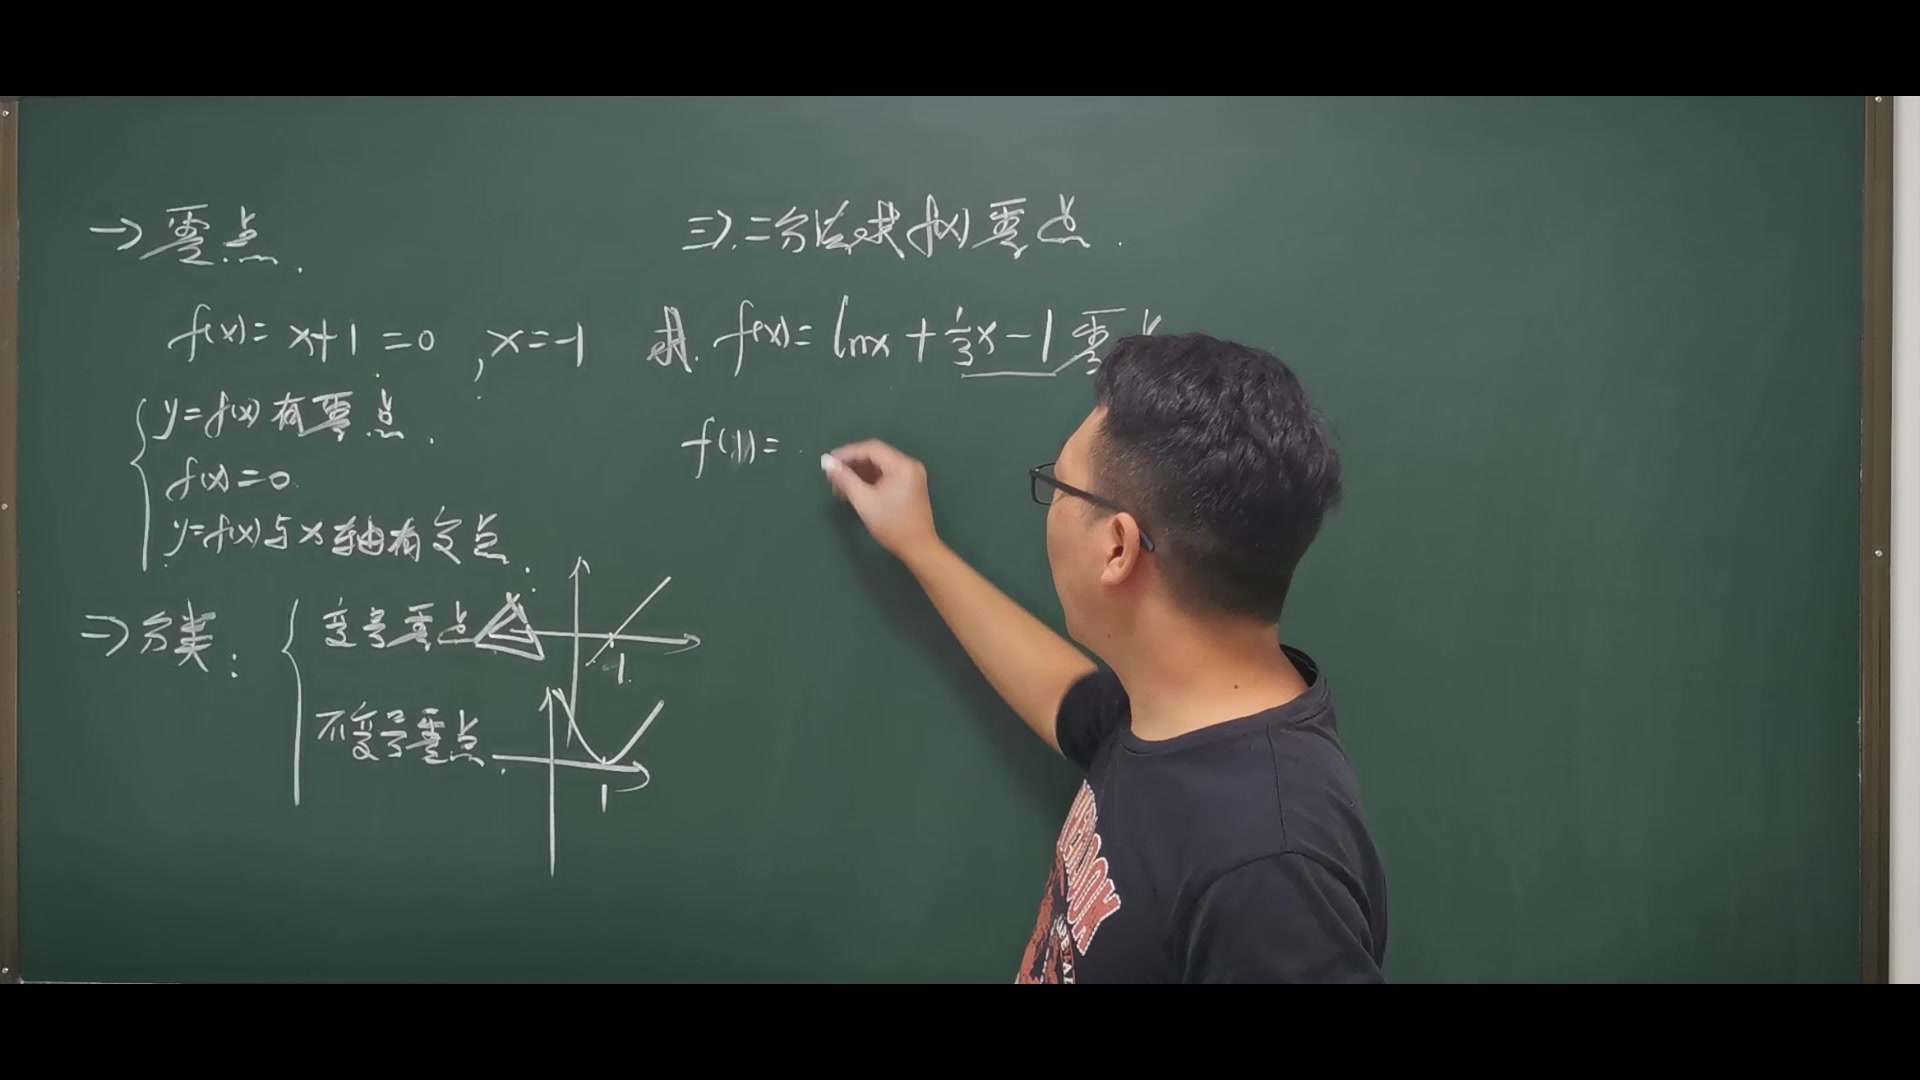 一>零点.
f(x)=x+1=0,x=-1
y=f(x)有零点.
f(x)=0.
y=f(x)与x轴有交点.
二>分类:
变号零点
1.
不变号零点.
1
三>.二分法求f(x)零点.
求.f(x)=lnx+1/3x-1零点
f(1)=